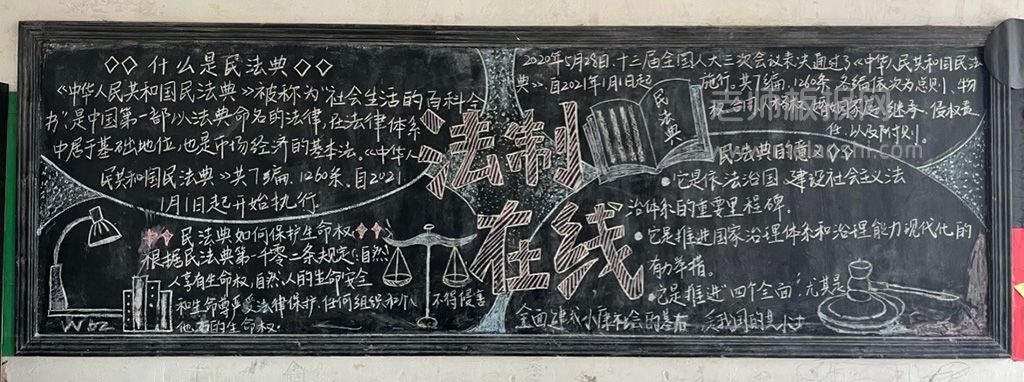 什么是民法典
《中华人民共和国民法典》被称为"社会生活的百科全
",是中国第一部以法典命名的法律,在法律体系
中居于基础地位,也是市场经济的基本法。《中华人
民共和国民法典》共7编、1260条,自2021
1月1日起开始执行
民法典如何保护生命权
根据民法典第一千零二条规定:自然
人享有生命权,自然人的生命安全
和生命尊严受法律保护,任何组织和个人不得侵害
他 的生命权.
法制
在线
民法典
2020年5月28日,十三届全国人大三次会议表决通过了《中华人民共和国民法
典》自2021年1月1日起施行,共7编,1260条,各编依次为总则、物
权 合同 继承、侵权责
任,以及附则。
民法典的意
它是依法治国、建设社会主义法
治体系的重要里程碑.
它是推进国家治理体系和治理能力现代化的
有力举措。
它是推进"四个全面,尤其是
全面建成小康社会的 我国的